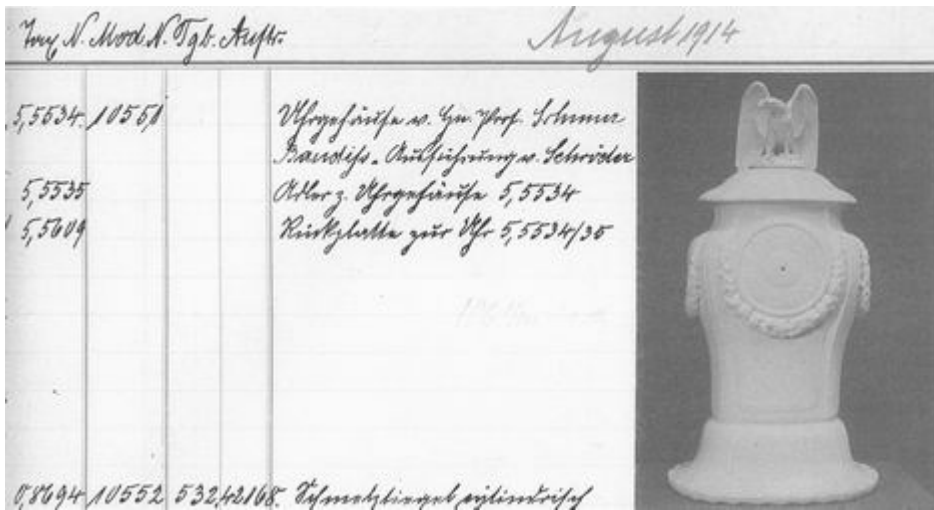 Inv. N. Mod. N. Tgb. Auftr. August 1914
5,5534. 10551 Uhrgehäuse v. Hn. Prof. Schmuz
Baudiß. Ausführung v. Schröder
5,5535 Adler z. Uhrgehäuse 5,5534
5,5609 Rückplatte zur Uhr 5,5534/35
0,8694 10552 532,42168. Schmelztiegel cylindrisch